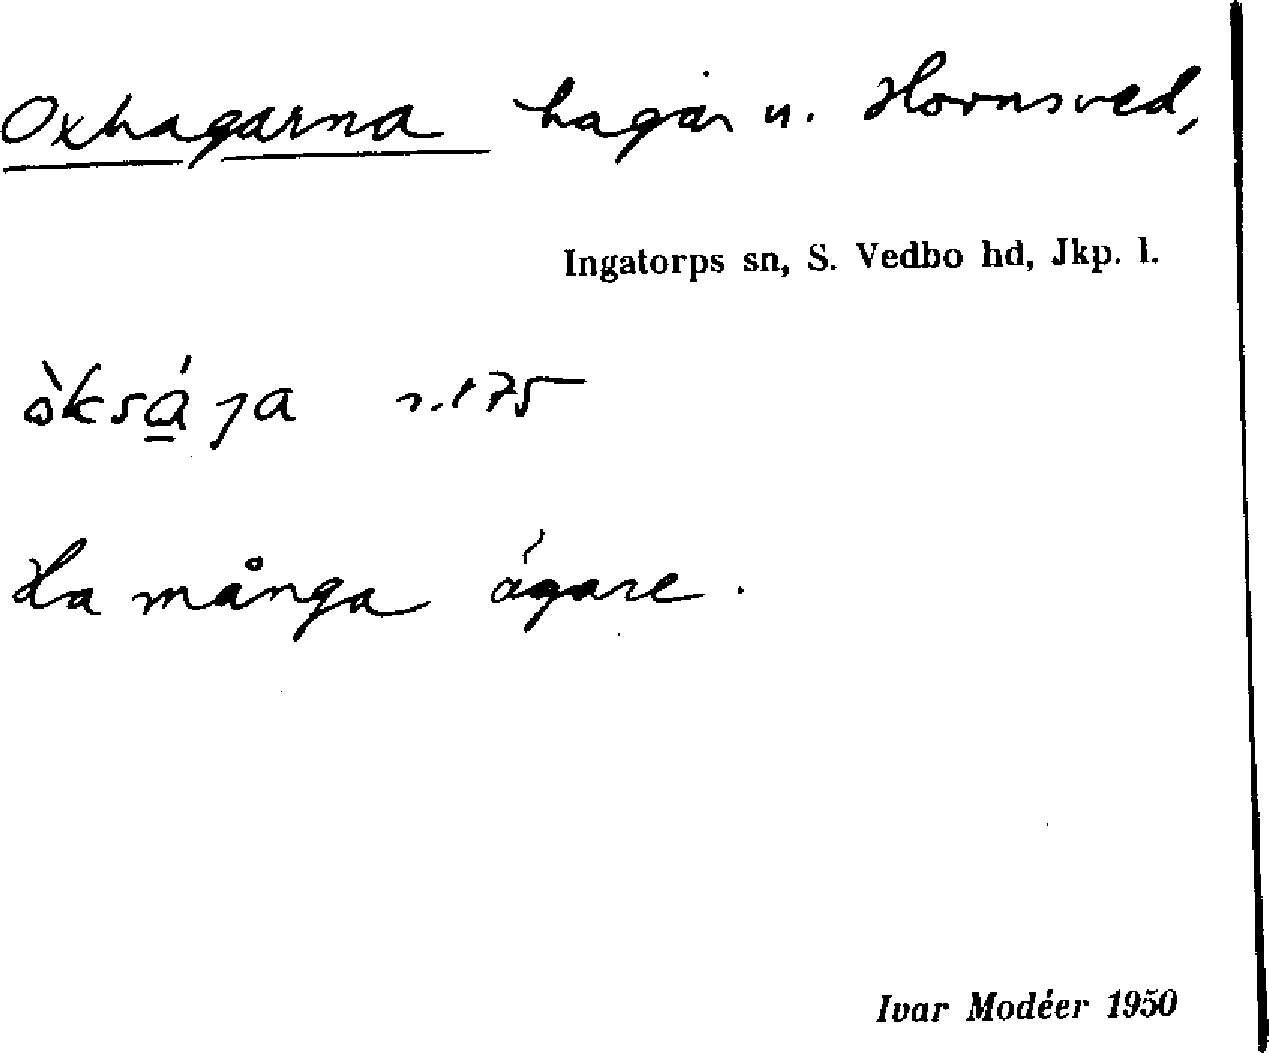 Oxhagarna hagar u. Hornsved,
Ingatorps sn, S. Vedbo hd, Jkp. l.
òksá̱ga r. 175
Ha många ägare.
Ivar Modéer 1950